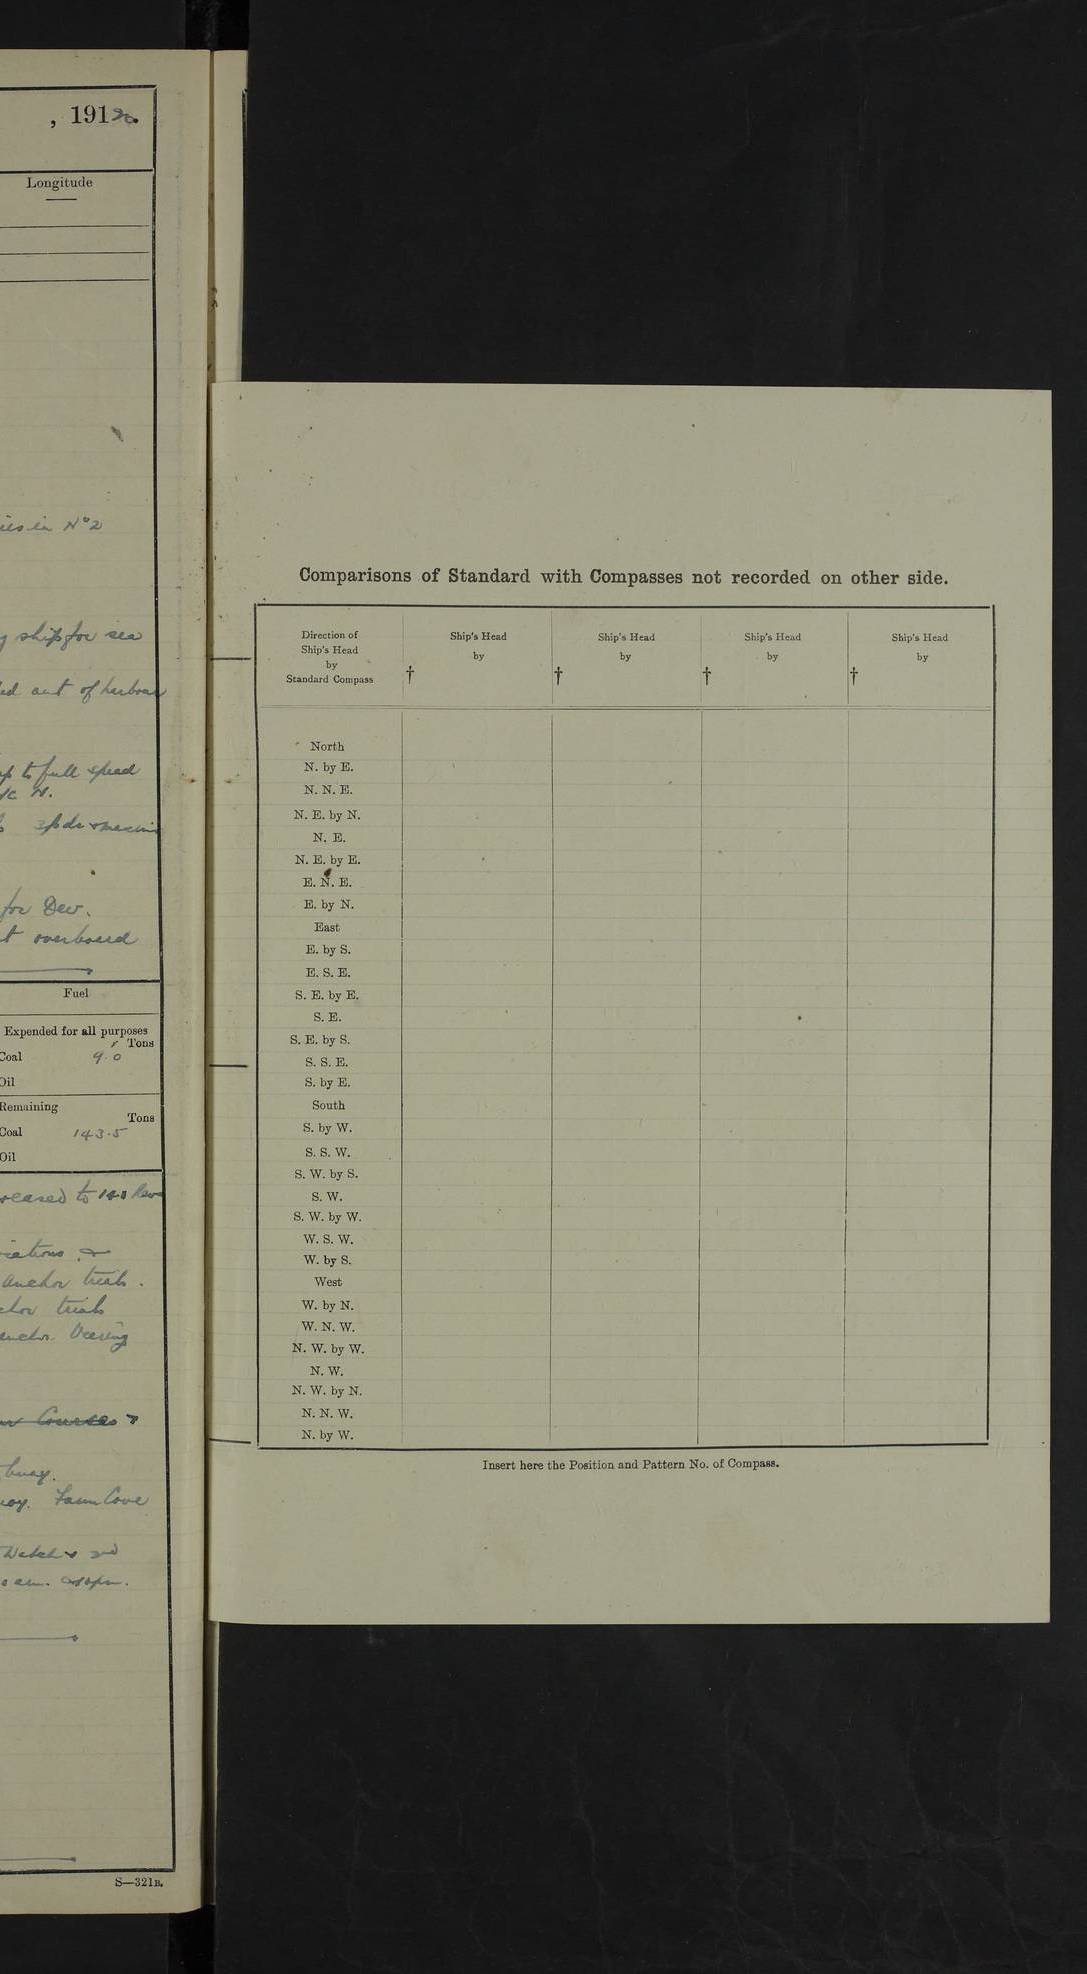 , 1912
Longitude
in Nº2
ship for sea
out of harbour
to full speed
N.
for Dev.
overboard
Fuel
Expended for all purposes
Tons
Coal 9.0
Oil
Remaining
Tons
Coal 143.5
Oil
to 140 Revs
anchor trials.
trials
Veering
Courses
buoy.
Farm Cove
Watch
S—321B.
Comparisons of Standard with Compasses not recorded on other side.
Direction of
Ship's Head
by
Standard Compass
Ship's Head
by
†
Ship's Head
by
†
Ship's Head
by
†
Ship's Head
by
†
North
N. by E.
N. N. E.
N. E. by N.
N. E.
N. E. by E.
E. N. E.
E. by N.
East
E. by S.
E. S. E.
S. E. by E.
S. E.
S. E. by S.
S. S. E.
S. by E.
South
S. by W.
S. S. W.
S. W. by S.
S. W.
S. W. by W.
W. S. W.
W. by S.
West
W. by N.
W. N. W.
N. W. by W.
N. W.
N. W. by N.
N. N. W.
N. by W.
Insert here the Position and Pattern No. of Compass.